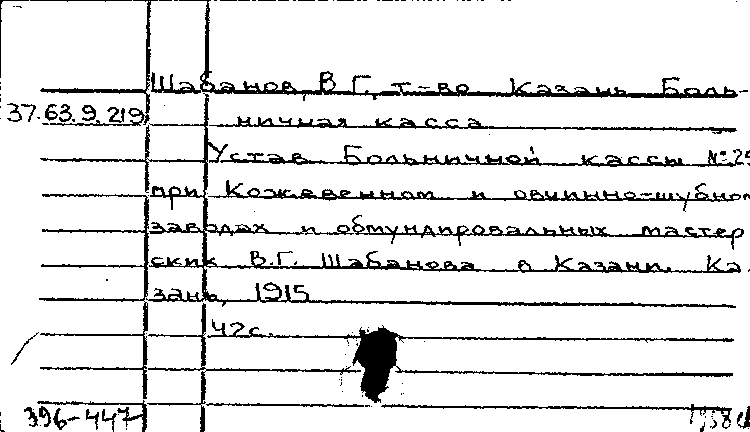 Шабанов, В.Г., т-во Казань Боль-
37.63.9.219 ничная касса
Устав Больничной кассы №25
при Кожевенном и овчинно-шубном
заводах и обмундировальных мастер
ских В.Г. Шабанова в Казани. Ка-
зань, 1915
42с.
396-447